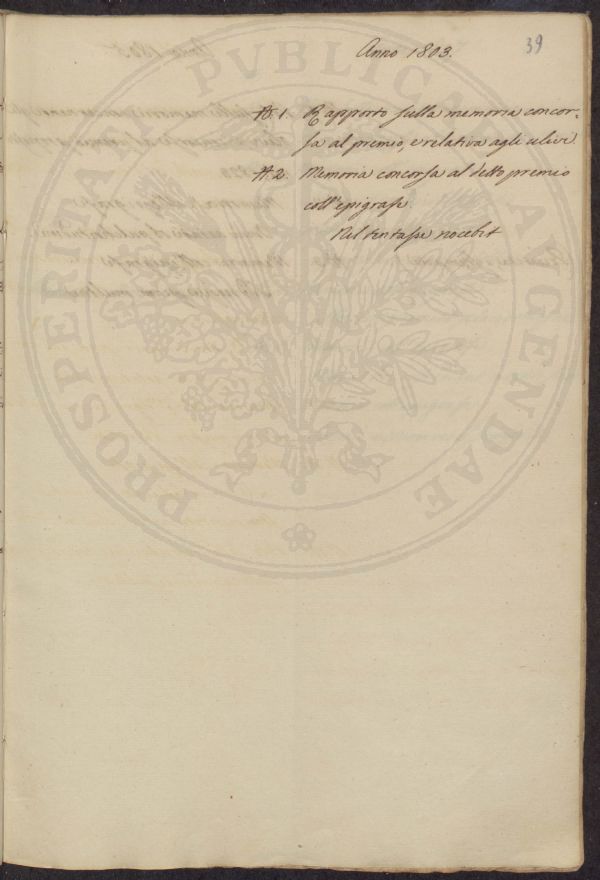 Anno 1803.
39
A. 1. Rapporto sulla memoria concor-
sa al premio, e relativa agli ulivi
A. 2. Memoria concorsa al detto premio
coll'epigrafe
Nil tentasse nocebit
PROSPERITATI PUBLICAE AUGENDAE